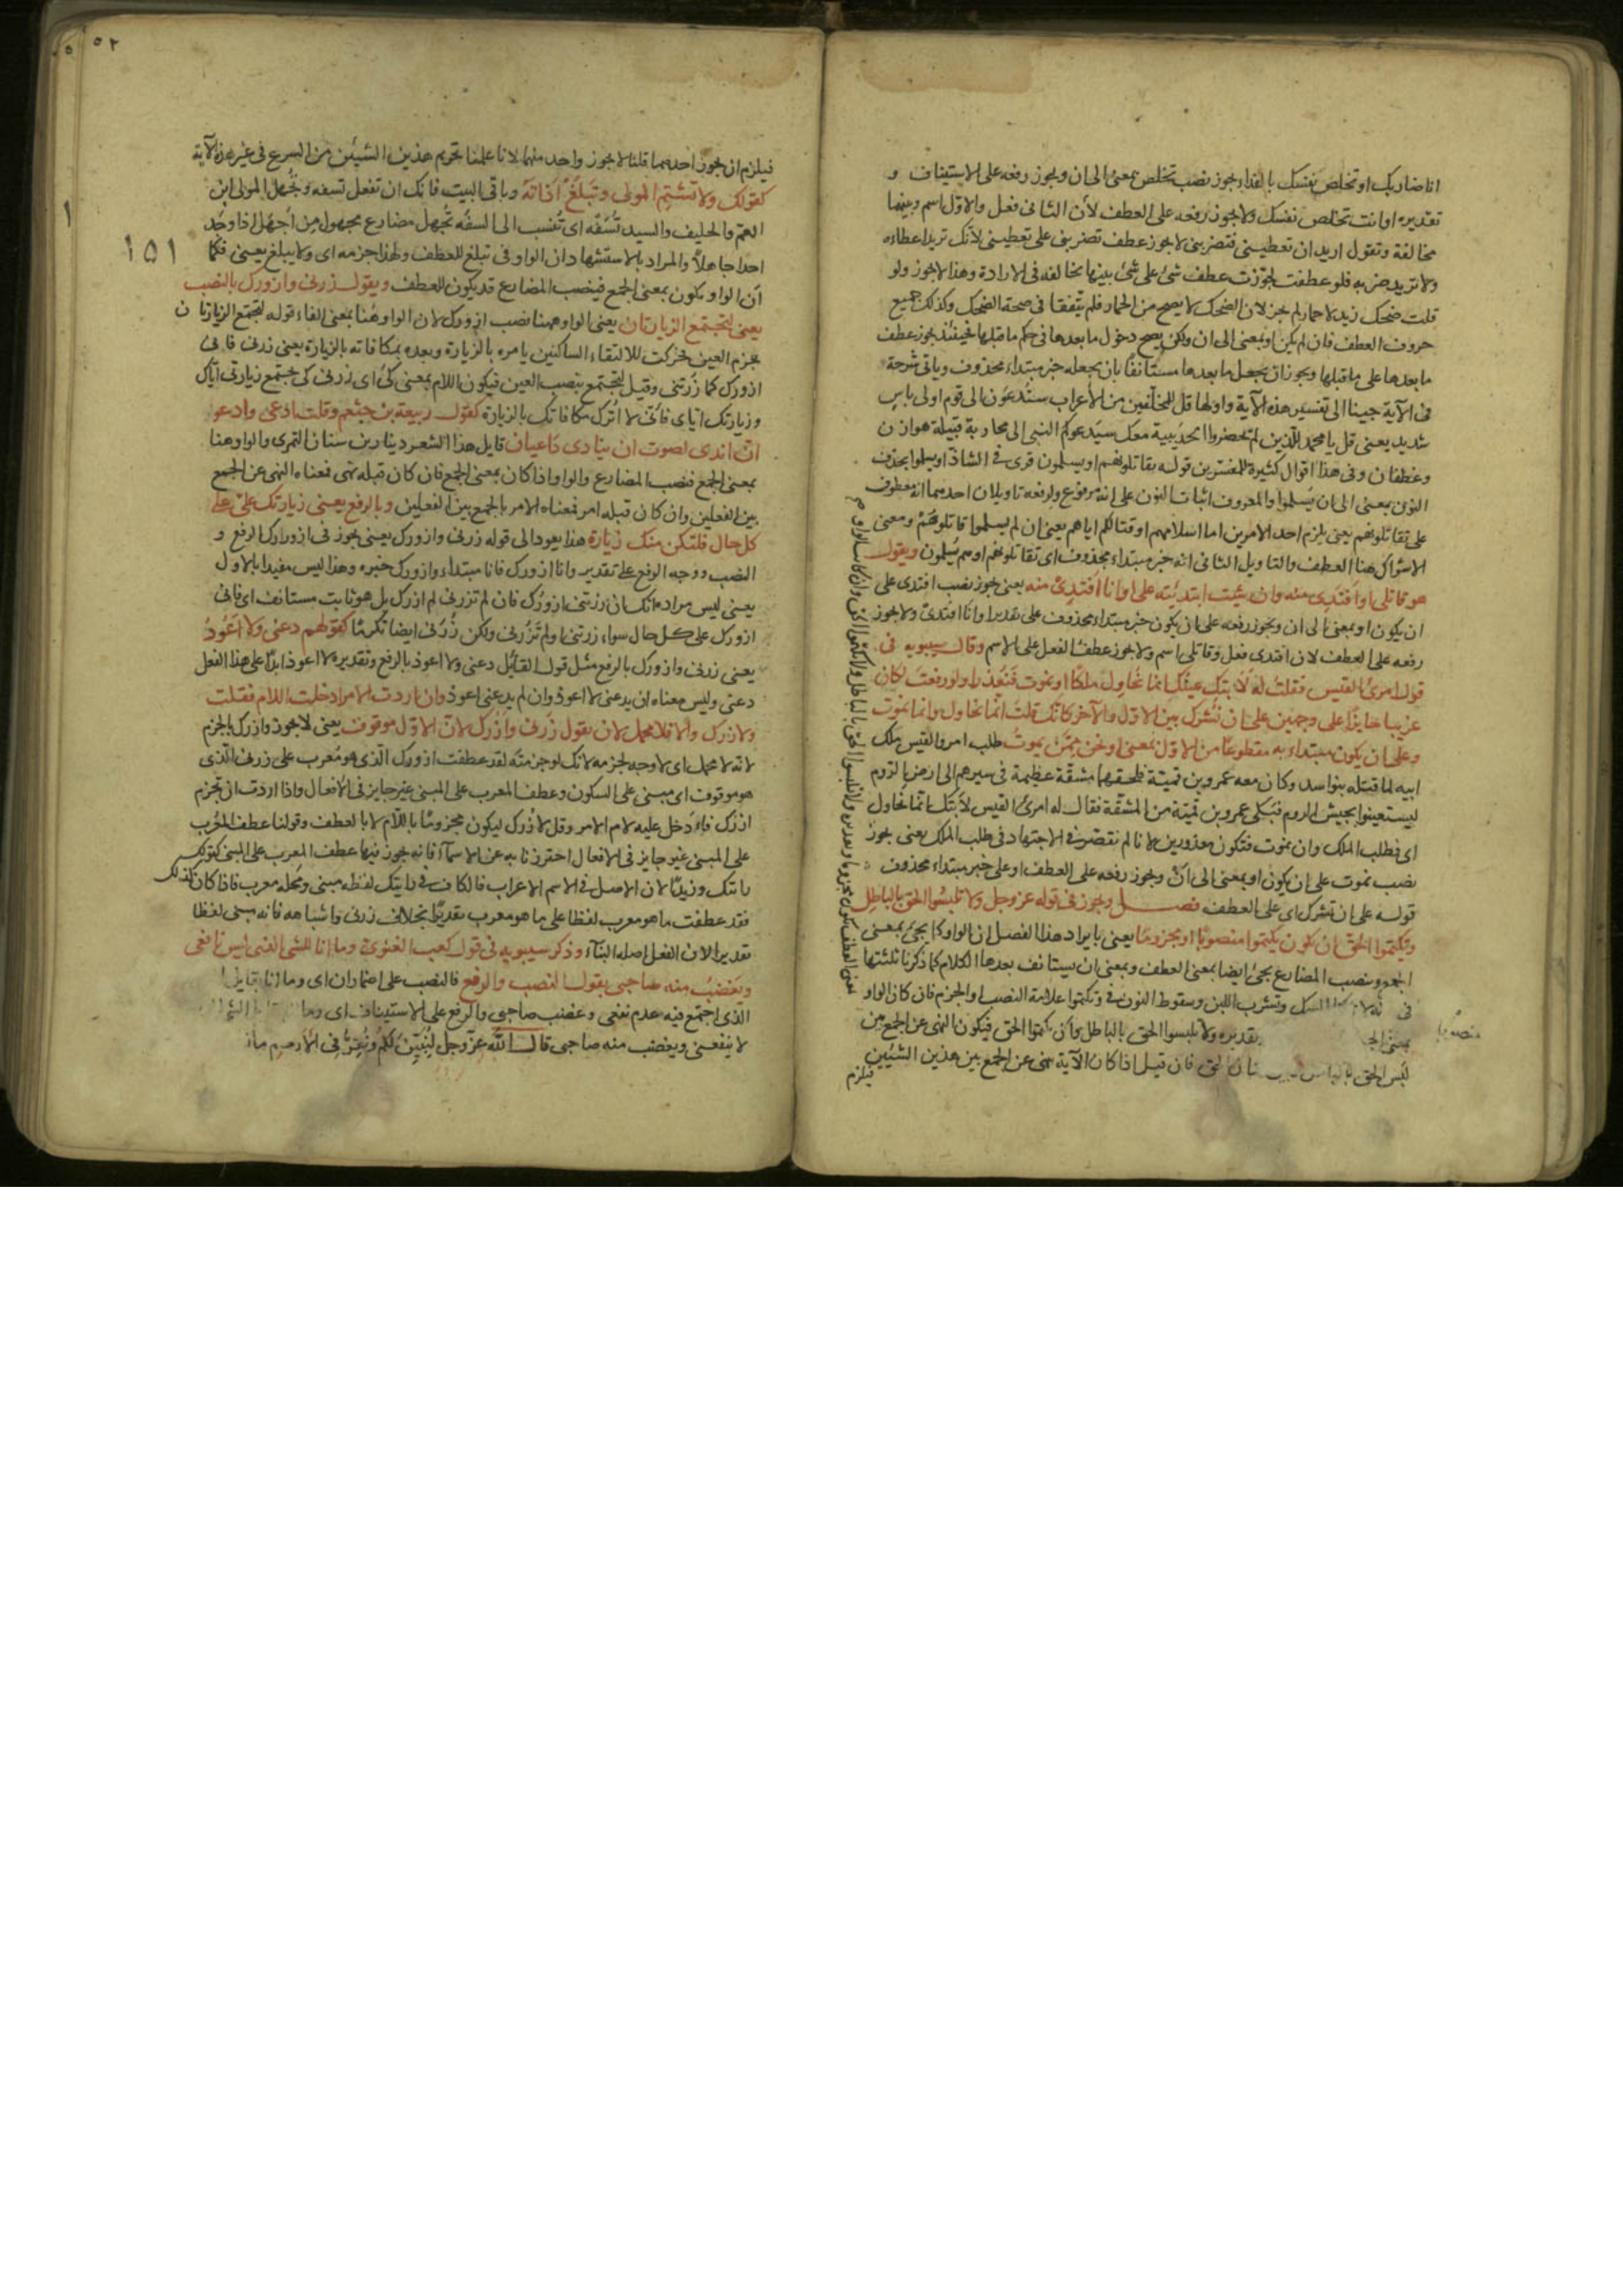 انا ضاربك او تخلص نفسك بالفداء يجوز نصب تخلص بمعنى الى ان ويجوز رفعه على الاستيناف و
تقديره او انت تخلص نفسك ولا يجوز رفعه على العطف لأن الثانى فعل والاول اسم وبينهما
مخالفة وتقول اريد ان تعطينى فتضربنى لا يجوز عطف تضربنى على تعطينى لأنك تريد اعطاءه
ولا تريد ضربه فلو عطفت لجوّزت عطف شئ على شئ بينهما مخالفة فى الارادة وهذا لا يجوز ولو
قلت ضحك زيد لا حمار لم يجز لان الضحك لا يصح من الحمار فلم يتفقا فى صحة الضحك وكذلك جميع
حروف العطف فان لم يكن او بمعنى الى ان ولكن يصح دخول ما بعدها فى حكم ما قبلها فحينئذ يجوز عطف
ما بعدها على ما قبلها ويجوز ان يجعل ما بعدها مستانفا بان يجعله خبر مبتداء محذوف وياتى شرحه
فى الآية جينا الى تفسير هذه الآية واولها قل للمخلّفين من الأعراب ستُدعَون الى قوم اولى باس
شديد يعنى قل يا محمد للّذين لم يحضروا الحديبية معك سيدعوكم النبى الى محاربة قبيلة هوازن
وغطفان وفى هذا اقوال كثيرة للمفسّرين قوله تقاتلونهم او يسلمون قرى فى الشاذ او يسلموا بحذف
النون بمعنى الى ان يسلموا والمعروف اثبات النون على انه مرفوع ولرفعه تاويلان احدهما انه معطوف
على تقاتلونهم يعنى يلزم احد الامرين اما اسلامهم او قتالكم اياهم يعنى ان لم يسلموا قاتلوهم ومعنى
الاشراك هنا العطف والتاويل الثانى انه خبر مبتداء محذوف اى تقاتلونهم او هم يسلمون ويقول
هو قاتلى او افتدى منه وان شئت ابتدئته على او انا افتدى منه يعنى يجوز نصب افتدى على
ان يكون او بمعنى الى ان ويجوز رفعه على ان يكون خبر مبتداء محذوف على تقدير او انا افتدى ولا يجوز
رفعه على العطف لان افتدى فعل وقاتلى اسم ولا يجوز عطف الفعل على الاسم وقال سيبويه فى
قول امرئ القيس فقلت له لا تبك عينك انما نحاول ملكا او نموت فنعذرا ولو رفعت لكان
عربيا جايزا على وجهين على ان تشرك بين الاول والآخر كانّك قلت انّما نحاول وانما نموت
وعلى ان يكون مبتداء به مقطوعا من الاول بمعنى او نحن ممّن يموت طلب امرؤ القيس ملك
ابيه لما قتله بنو اسد وكان معه عمرو بن قميئة فلحقهما مشقة عظيمة فى سيرهم الى ارض الروم
ليستعينوا بجيش الروم فبكى عمرو بن قميئة من المشقة فقال له امرئ القيس لا تبك انّما نحاول
اى نطلب الملك وان نموت فنكون معذورين لانا لم نقتصر فى الاجتهاد فى طلب الملك يعنى يجوز
نصب نموت على ان يكون او بمعنى الى ان ويجوز رفعه على العطف او على خبر مبتداء محذوف
قوله على ان تشرك اى على العطف فصـــل ويجوز فى قوله عز وجل ولا تلبسوا الحق بالباطل
وتكتموا الحق ان يكون تكتموا منصوبا او مجزوما يعنى بايراد هذا الفصل ان الواو كما يجئ بمعنى
الجمع وينصب المضارع يجئ ايضا بمعنى العطف وبمعنى ان يستانف بعدها الكلام كما ذكرنا ثلثتها
فى وتشرب اللبن وسقوط النون فى وتكتموا علامة النصب او الجزم فان كان الواو
بمعنى تقديره ولا تلبسوا الحق بالباطل وأن تكتموا الحق فيكون النهى عن الجمع بين
لبس الحق فان قيل اذا كان الآية نهى عن الجمع بين هذين الشيئين
فيلزم
منصوبا
٥٢
١٥١
١
فيلزم ان يجوز احدهما قلنا لا يجوز واحد منهما لانا علمنا تحريم هذين الشيئين من الشرع فى غير هذه الآية
كقولك ولا تشتم المولى وتبلغ اذاته وباقى البيت فانك ان تفعل تسفه وتجهل المولى ابن
العم والحليف والسيد تسفّه اى تنسب الى السفه تجهل مضارع مجهول من اجهل اذا وجد
احدا جاهلا والمراد بالاستشهاد ان الواو فى تبلغ للعطف ولهذا جزمه اى ولا يبلغ يعنى فكما
أن الواو يكون بمعنى الجمع فينصب المضارع قد يكون للعطف ويقول زرنى وازورك بالنصب
يعنى لتجتمع الزيارتان يعنى الواو ههنا نصب ازورك لان الواو هنا بمعنى الفاء قوله لتجتمع الزيارتان
بجزم العين حركت للالتقاء الساكنين يامره بالزيارة وبعده بمكافاته بالزيارة يعنى زرنى فانى
ازورك كما زرتنى وقيل لتجتمع بنصب العين فيكون اللام بمعنى كى اى زرنى كى يجتمع زيارتى اياك
وزيارتك اياى فانى لا اترك مكافاتك بالزيارة كقول ربيعة بن جشم وقلت ادعى وادعو
انّ اندى لصوت ان ينادى داعيان قايل هذا الشعر دينار بن سنان النمرى والواو هنا
بمعنى الجمع فنصب المضارع والواو اذا كان بمعنى الجمع فان كان قبله نهى فمعناه النهى عن الجمع
بين الفعلين وان كان قبله امر فمعناه الامر بالجمع بين الفعلين وبالرفع يعنى زيارتك علىّ على
كل حال فلتكن منك زيارة هذا يعود الى قوله زرنى وازورك يعنى يجوز فى ازورك الرفع و
النصب ووجه الرفع على تقدير وانا ازورك فانا مبتداء وازورك خبره وهذا ليس مقيدا بالاول
يعنى ليس مراده انك ان زرتنى ازورك فان لم تزرنى لم ازرك بل هو ثابت مستانف اى فانى
ازورك على كل حال سواء زرتنى او لم تزرنى ولكن زرنى ايضا تكرما كقولهم دعنى ولا اعود
يعنى زرنى وازورك بالرفع مثل قول القايل دعنى ولا اعود بالرفع وتقديره لا اعود ابدا على هذا الفعل
دعنى وليس معناه ان يدعنى لا اعود وان لم يدعنى اعود وان اردت الامر ادخلت اللام فقلت
ولازرك والا فلا محمل لان يقول زرنى وازرك لان الاول موقوف يعنى لا يجوز وازرك بالجزم
لانه لا محمل اى لا وجه لجزمه لانك لو جزمته لقد عطفت ازورك الذى هو معرب على زرنى الذى
هو موقوف اى مبنى على السكون وعطف المعرب على المبنى غير جايز فى الافعال واذا اردت ان تجزم
ازرك فادخل عليه لام الامر وقل لازرك ليكون مجزوما باللام لا بالعطف وقولنا عطف المعرب
على المبنى غير جايز فى الافعال احترزنا به عن الاسمآء فانه يجوز فيها عطف المعرب على المبنى كقولك
رايتك وزيدا لان الاصل فى الاسم الاعراب فالكاف فى رايتك لفظه مبنى ومحله معرب فاذا كان كذلك
فقد عطفت ما هو معرب لفظا على ما هو معرب تقديرا بخلاف زرنى واشباهه فانه مبنى لفظا
تقديرا لان الفعل اصله البنآء وذكر سيبويه فى قول كعب الغنوى وما انا للشئ الذى ليس نافعى
ويغضب منه صاحبى بقول النصب والرفع فالنصب على اضمار ان اى وما انا بقايل
الذى اجتمع فيه عدم نفعى وغضب صاحبى والرفع على الاستيناف اى وما
لا ينفعنى ويغضب منه صاحبى قال الله عز وجل لنبيّن لكم ونقرّ فى الارحام ما